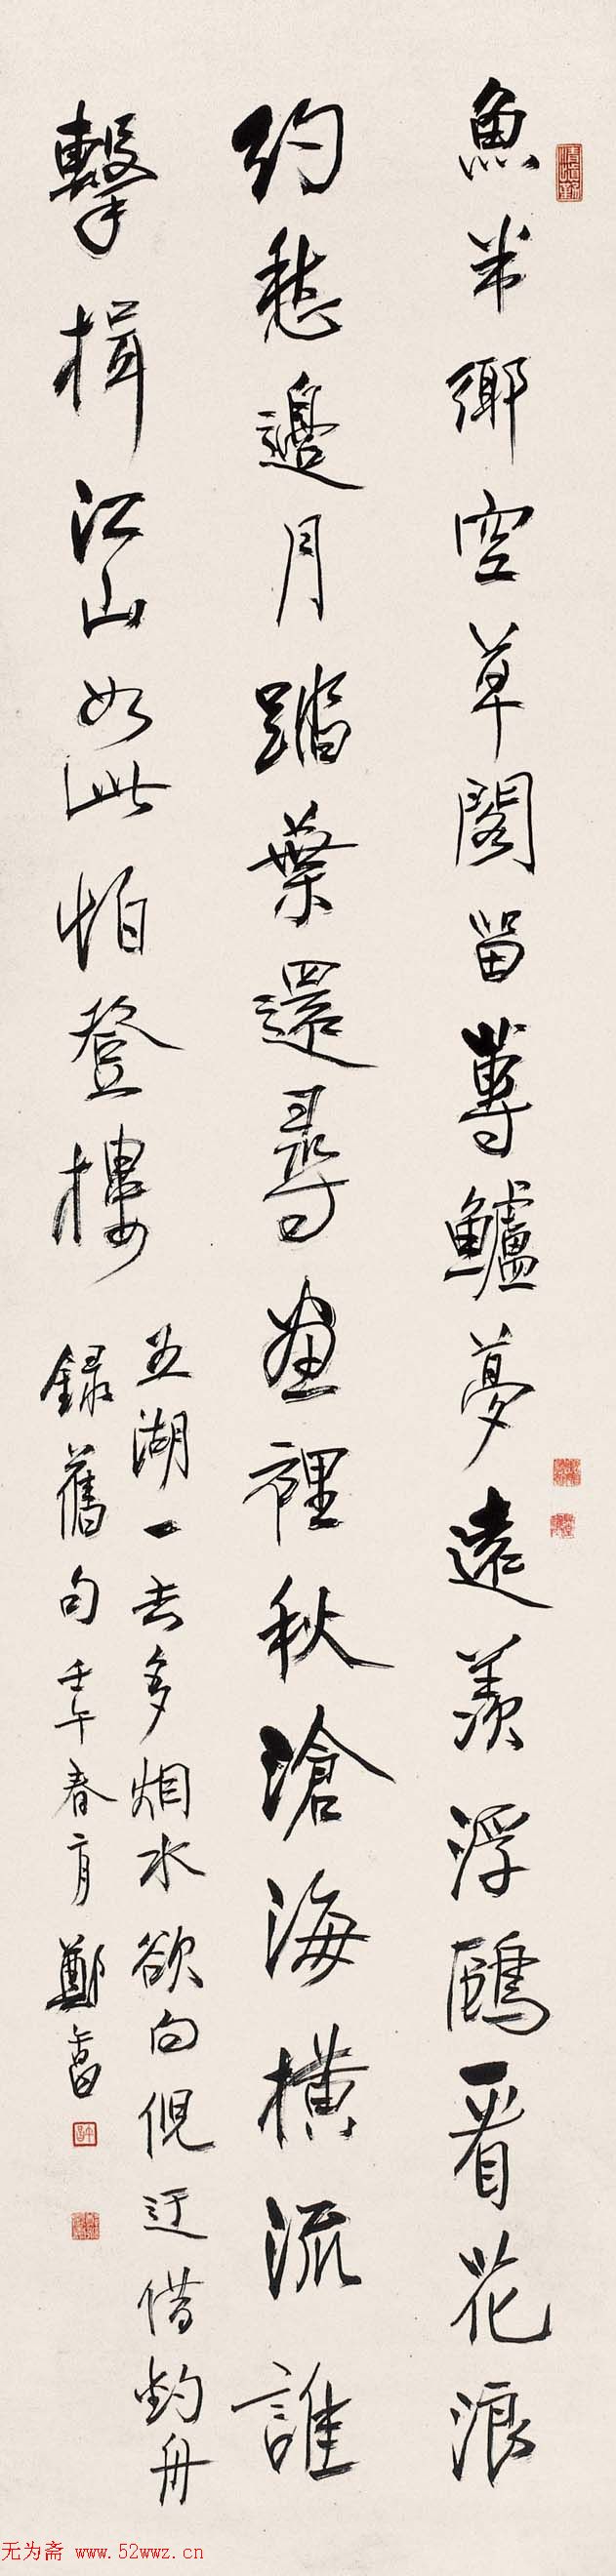 魚米鄉空草閣留蓴鱸夢遠羨浮鷗看花浪
約愁邊月踏葉還尋畫裡秋滄海橫流誰
擊楫江山如此怕登樓
五湖一去多烟水欲向倪迂借釣舟
錄舊句壬午春二月鄭午昌
无为斋 www.52wwz.cn